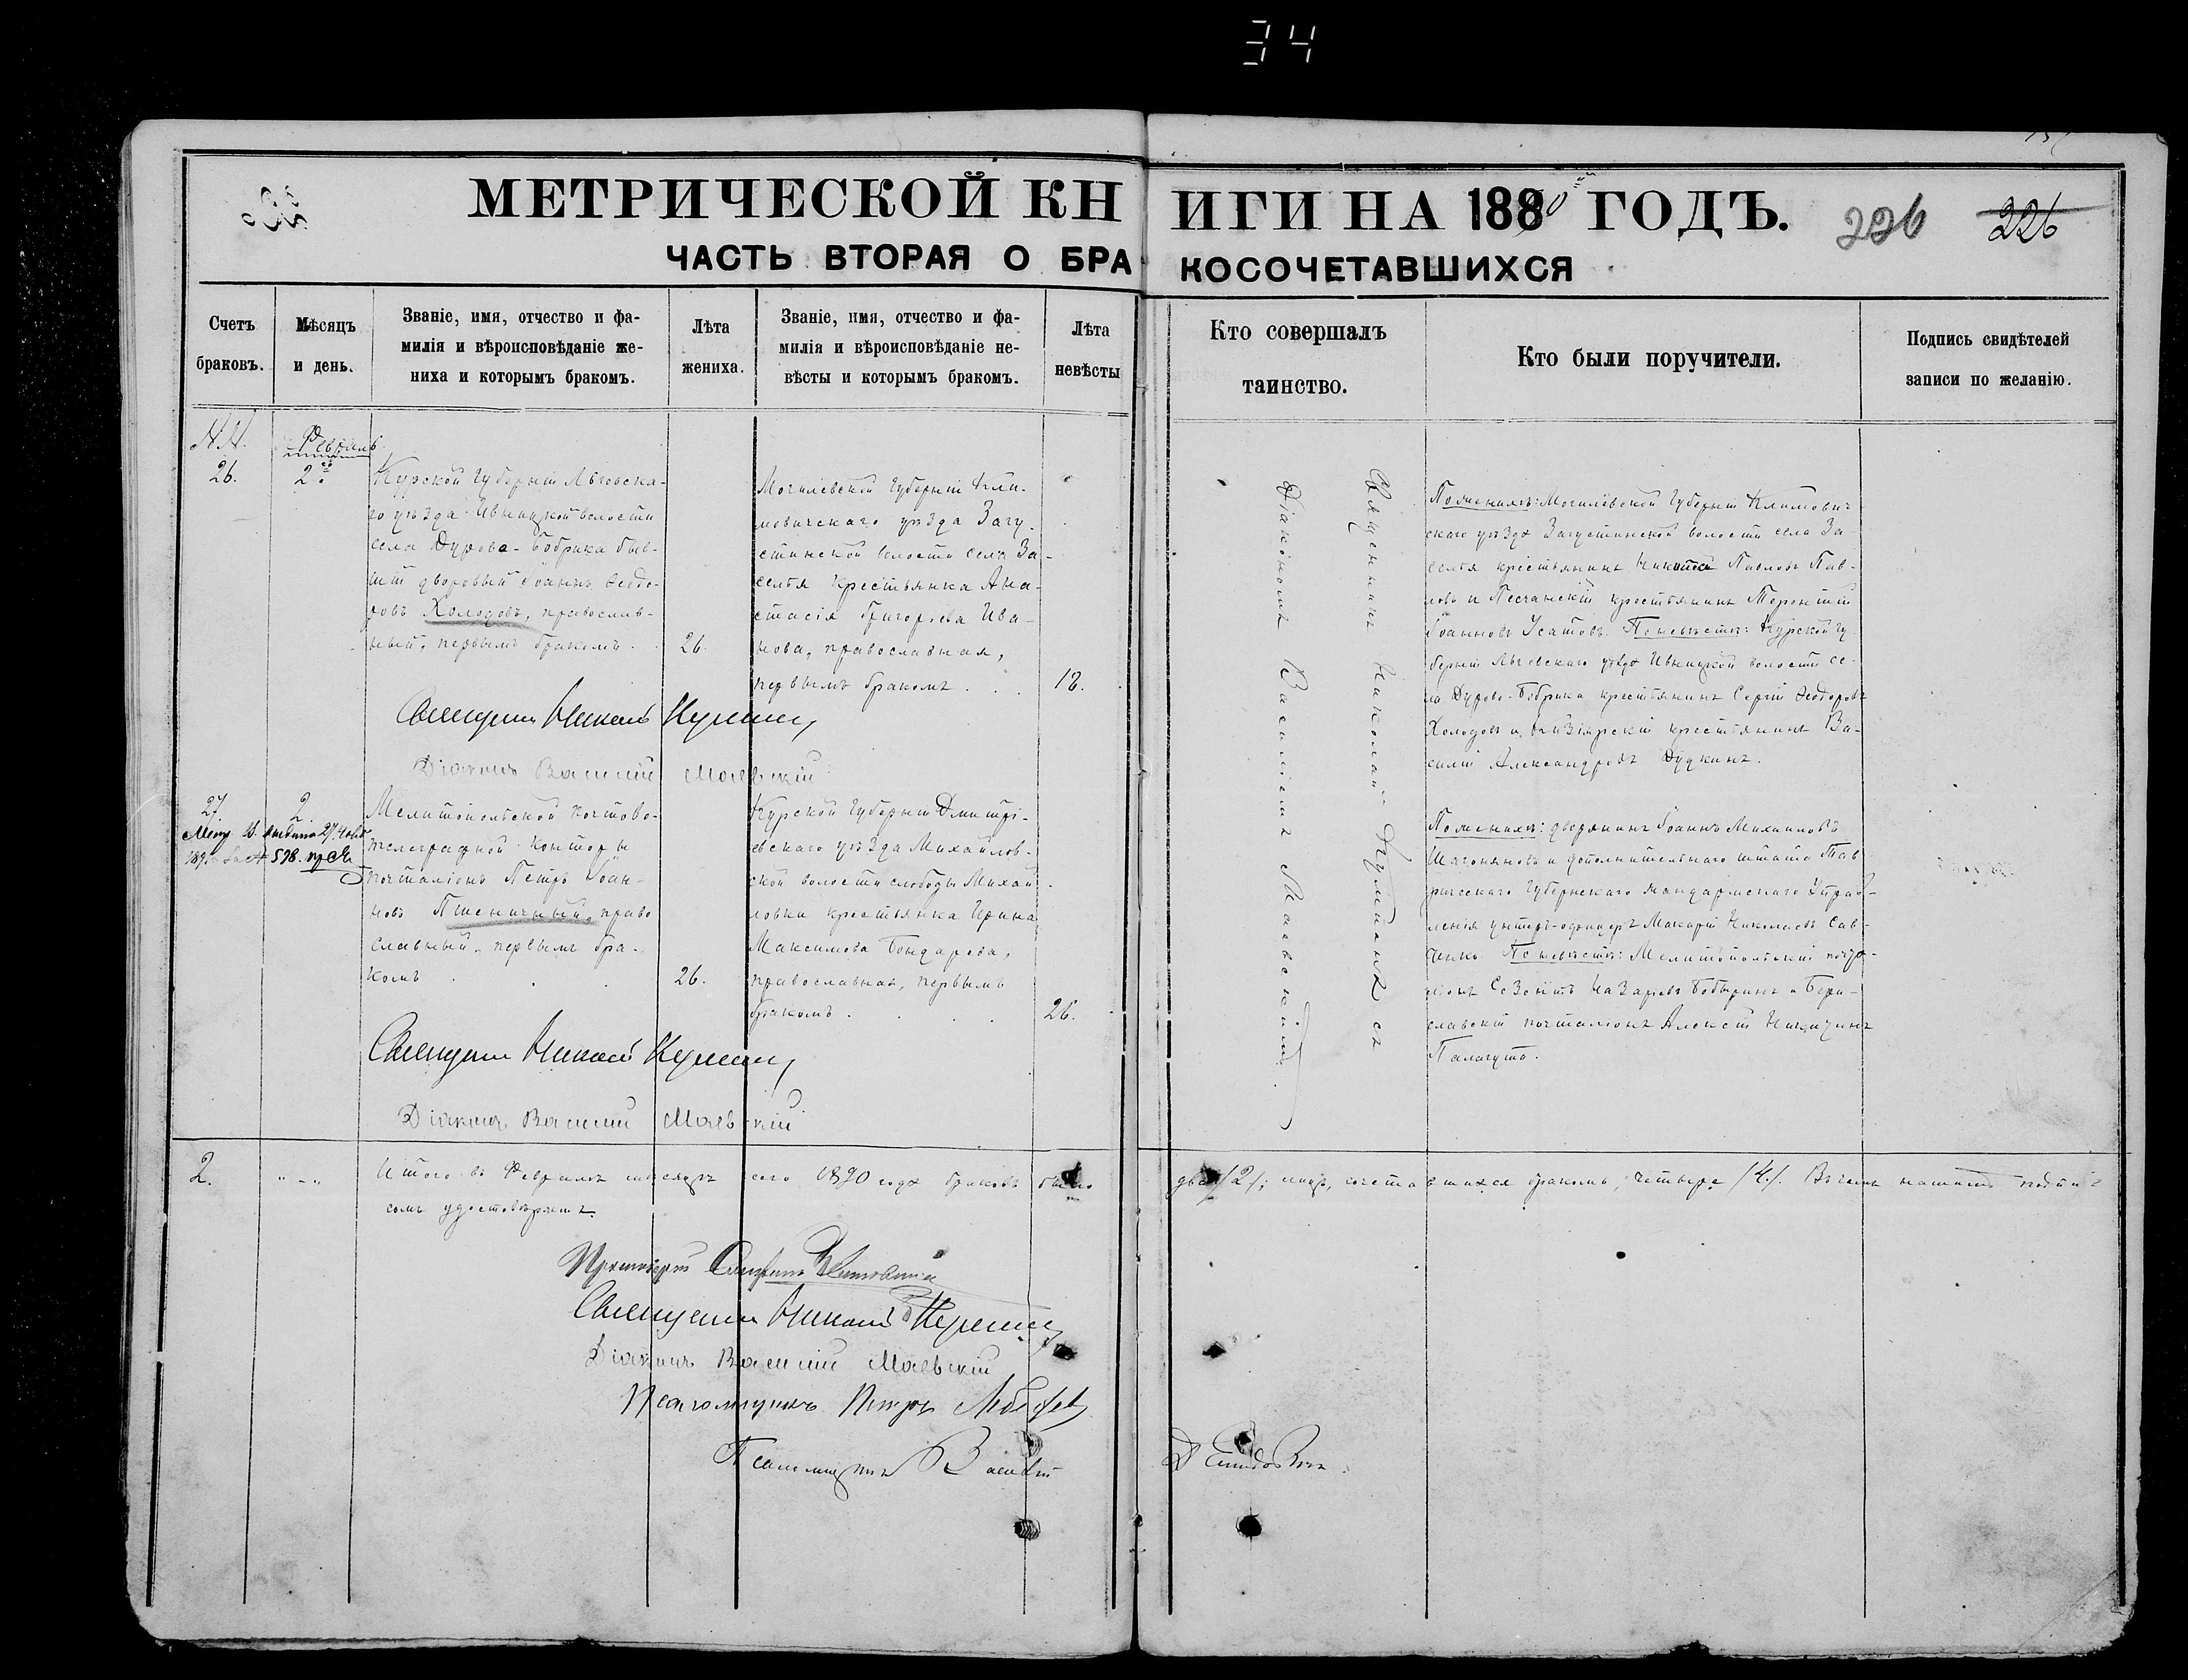 34
МЕТРИЧЕСКОЙ КНИГИ НА 1890 ГОДЪ.
226
226
ЧАСТЬ ВТОРАЯ О БРАКОСОЧЕТАВШИХСЯ
Счетъ
браковъ.
Мѣсяцъ
и день.
Званіе, имя, отчество и фа-
милія и вѣроисповѣданіе же-
ниха и которымъ бракомъ.
Лѣта
жениха.
Званіе, имя, отчество и фа-
милія и вѣроисповѣданіе не-
вѣсты и которымъ бракомъ.
Лѣта
невѣсты
Кто совершалъ
таинство.
Кто были поручители.
Подпись свидѣтелей
записи по желанію.
Февраль
26.
2
Курской Губерніи Льговска-
го уѣзда Ивницкой волости
села Дурова-Бобрика быв-
шій дворовый Іоаннъ Ѳеодо-
ровъ Холодовъ, православ-
ный, первымъ бракомъ.
26.
Могилевской Губерніи Кли-
мовичскаго уѣзда Загу-
стинской волости села За-
селья крестьянка Ана-
стасія Григорьева Ива-
нова, православная,
первымъ бракомъ . . .
18.
Священникъ Николай
Діаконъ Василій Маевскій
Священникъ Николай съ
Діакономъ Василіемъ Маевскимъ.
По женихѣ: Могилевской Губерніи Климович
скаго уѣзда Загустинской волости села За
селья крестьянинъ Никита Павловъ Пав-
ловъ и Песчанскій крестьянинъ Терентій
Іоанновъ Усатовъ. По невѣстѣ: Курской Гу-
берніи Льговскаго уѣзда Ивницкой волости се-
ла Дурово-Бобрика крестьянинъ Сергій Ѳеодоровъ
Холодовъ и крестьянинъ Ва-
силій Александровъ Дудкинъ.
27.
2.
Мелитопольской почтово-
телеграфной конторы
почталіонъ Петръ Іоан-
новъ Пшеничный, право
славный, первымъ бра-
комъ
26.
Курской Губерніи Дмитрі-
евскаго уѣзда Михайлов-
ской волости слободы Михай
ловки крестьянка Ирина
Максимова Бондарева,
православная, первымъ
бракомъ
26.
Священникъ Николай
Діаконъ Василій Маевскій
По женихѣ: дворянинъ Іоаннъ Михаиловъ
и дополнительнаго штата Тав
рическаго Губернскаго жандармскаго Управ-
ленія унтеръ-офицеръ Макарій Николаевъ Сав-
ченко. По невѣстѣ: Мелитопольскій почта-
ліонъ Созонтъ Назаревъ Бобыринъ и Бери-
славскій почталіонъ Алексѣй Никитинъ
Палагута.
2.
" - "
Итого въ Февралѣ мѣсяцѣ сего 1890 года браковъ было два /2/; лицъ, сочетавшихся бракомъ, четыре /4/. Въ чемъ нашимъ подпи-
сомъ удостовѣряемъ.
Протоіерей
Священникъ Николай
Діаконъ Василій Маевскій
Псаломщикъ Петръ Лебедевъ
Псаломщикъ Василій